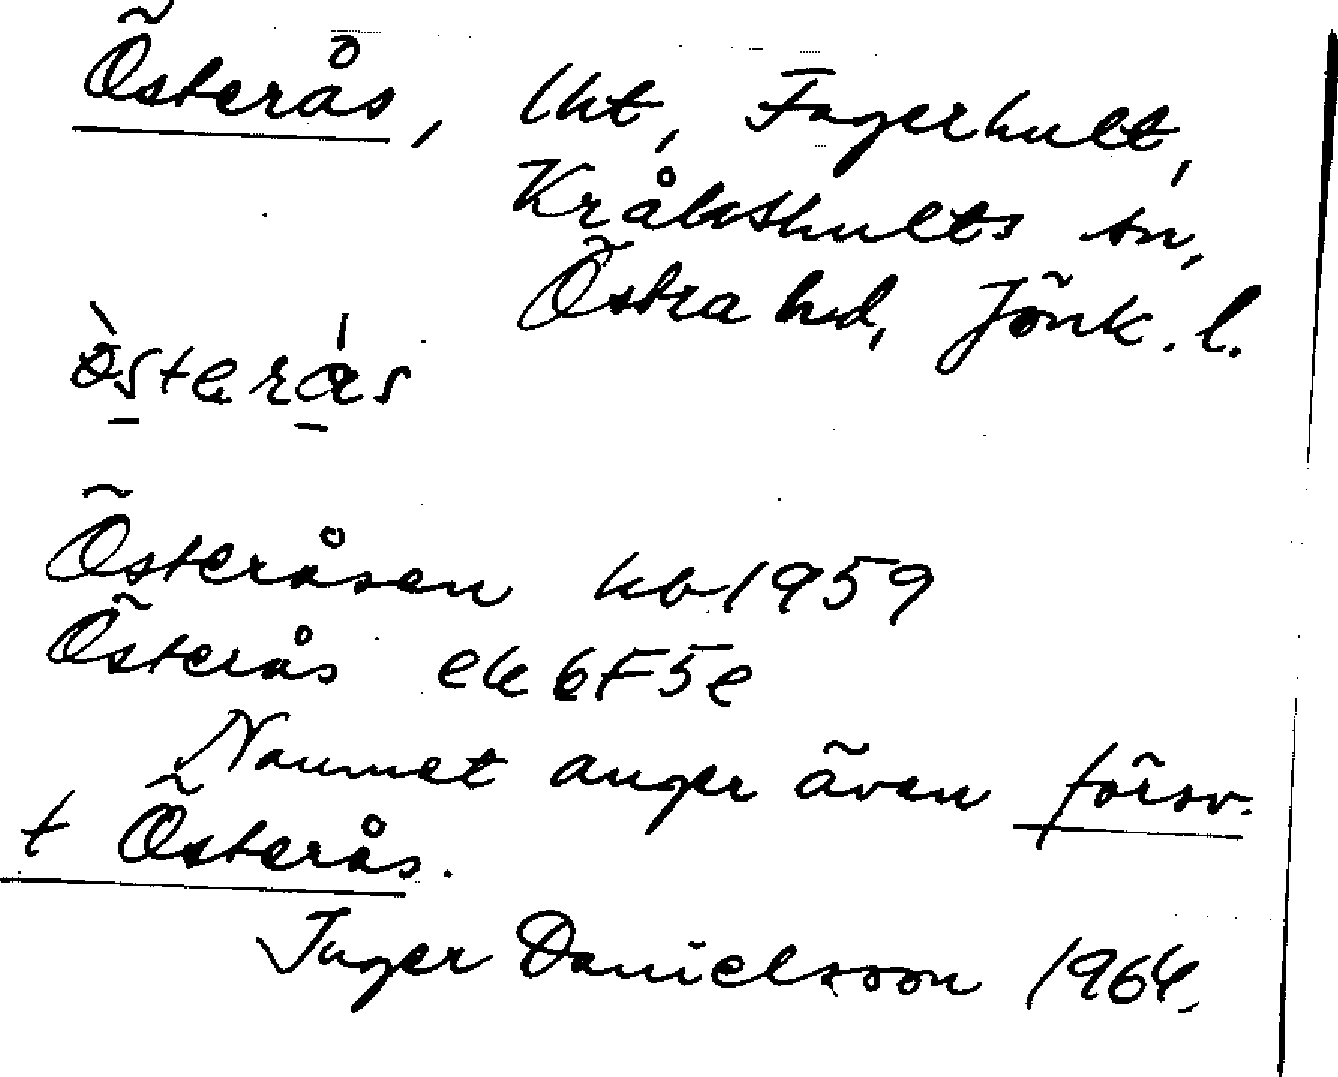 Österås, lht, Fagerhult,
Kråkshults sn,
Östra hd, Jönk. l.
ö̀sterås
Österåsen kb 1959
Österås ek 6F5e
Namnet anger även försv.
t Österås.
Inger Danielsson 1964.